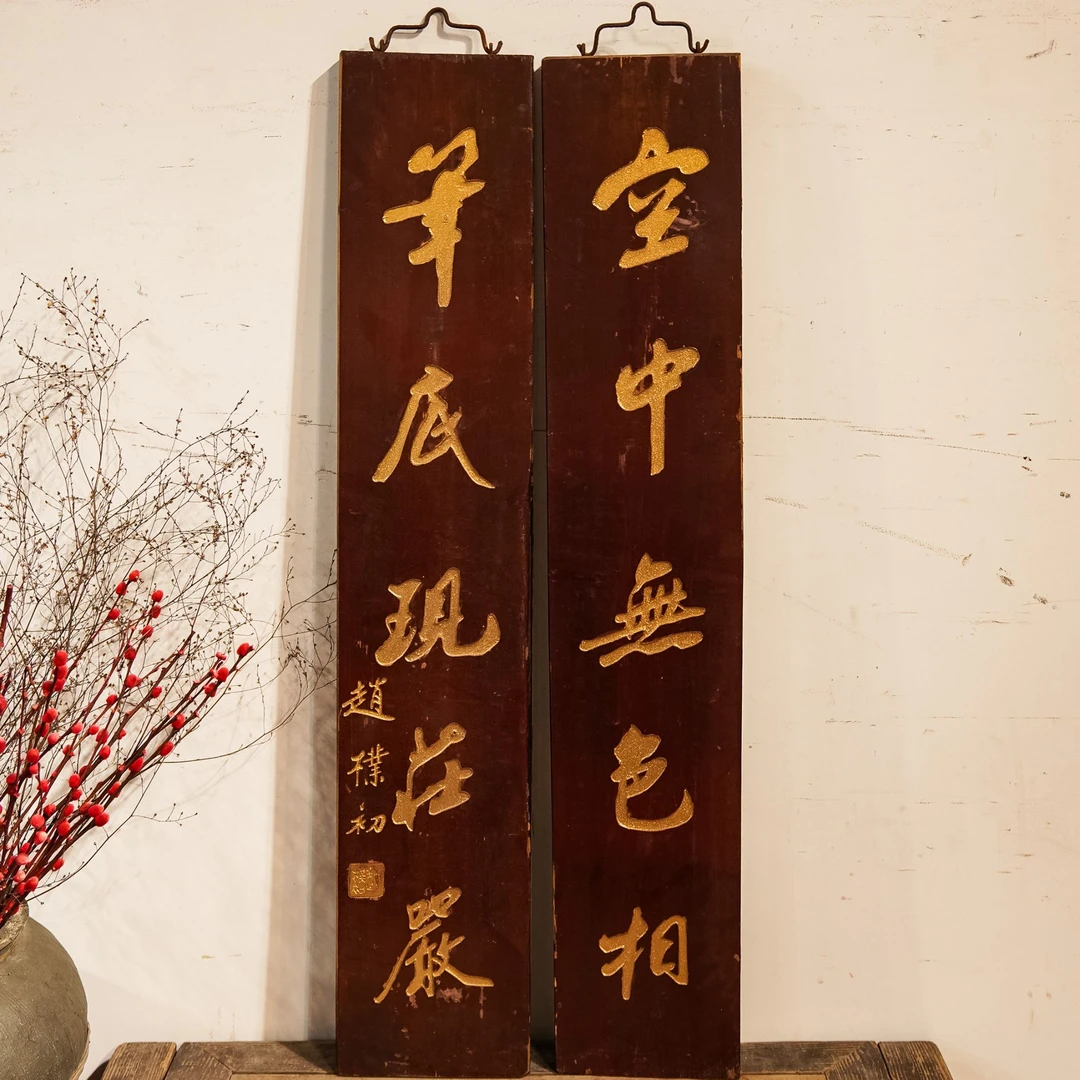 空中無色相
筆底現莊嚴
趙樸初